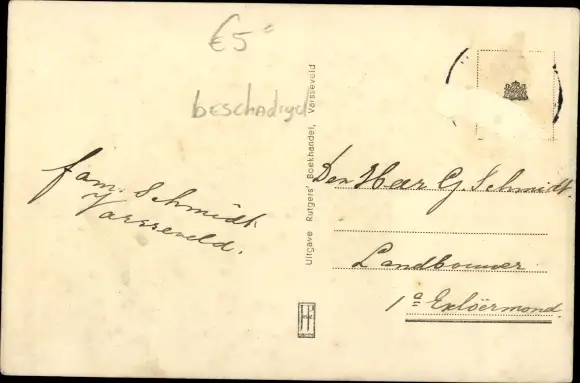 €5=
beschadigd
fam. Schmidt
Varsseveld.
Uitgave Rutgers' Boekhandel, Varsseveld
Den Heer G. Schmidt.
Landbouwer
1a Exloërmond.